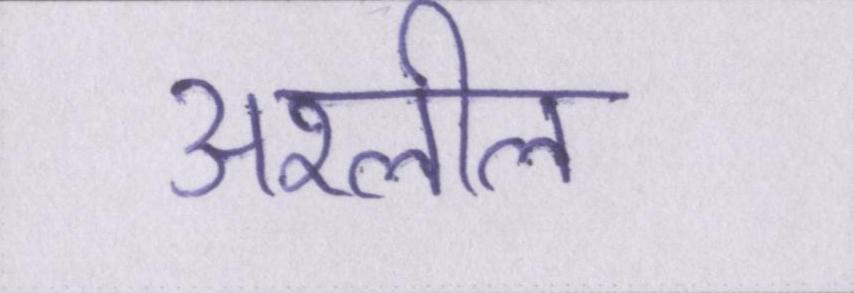 अश्लील